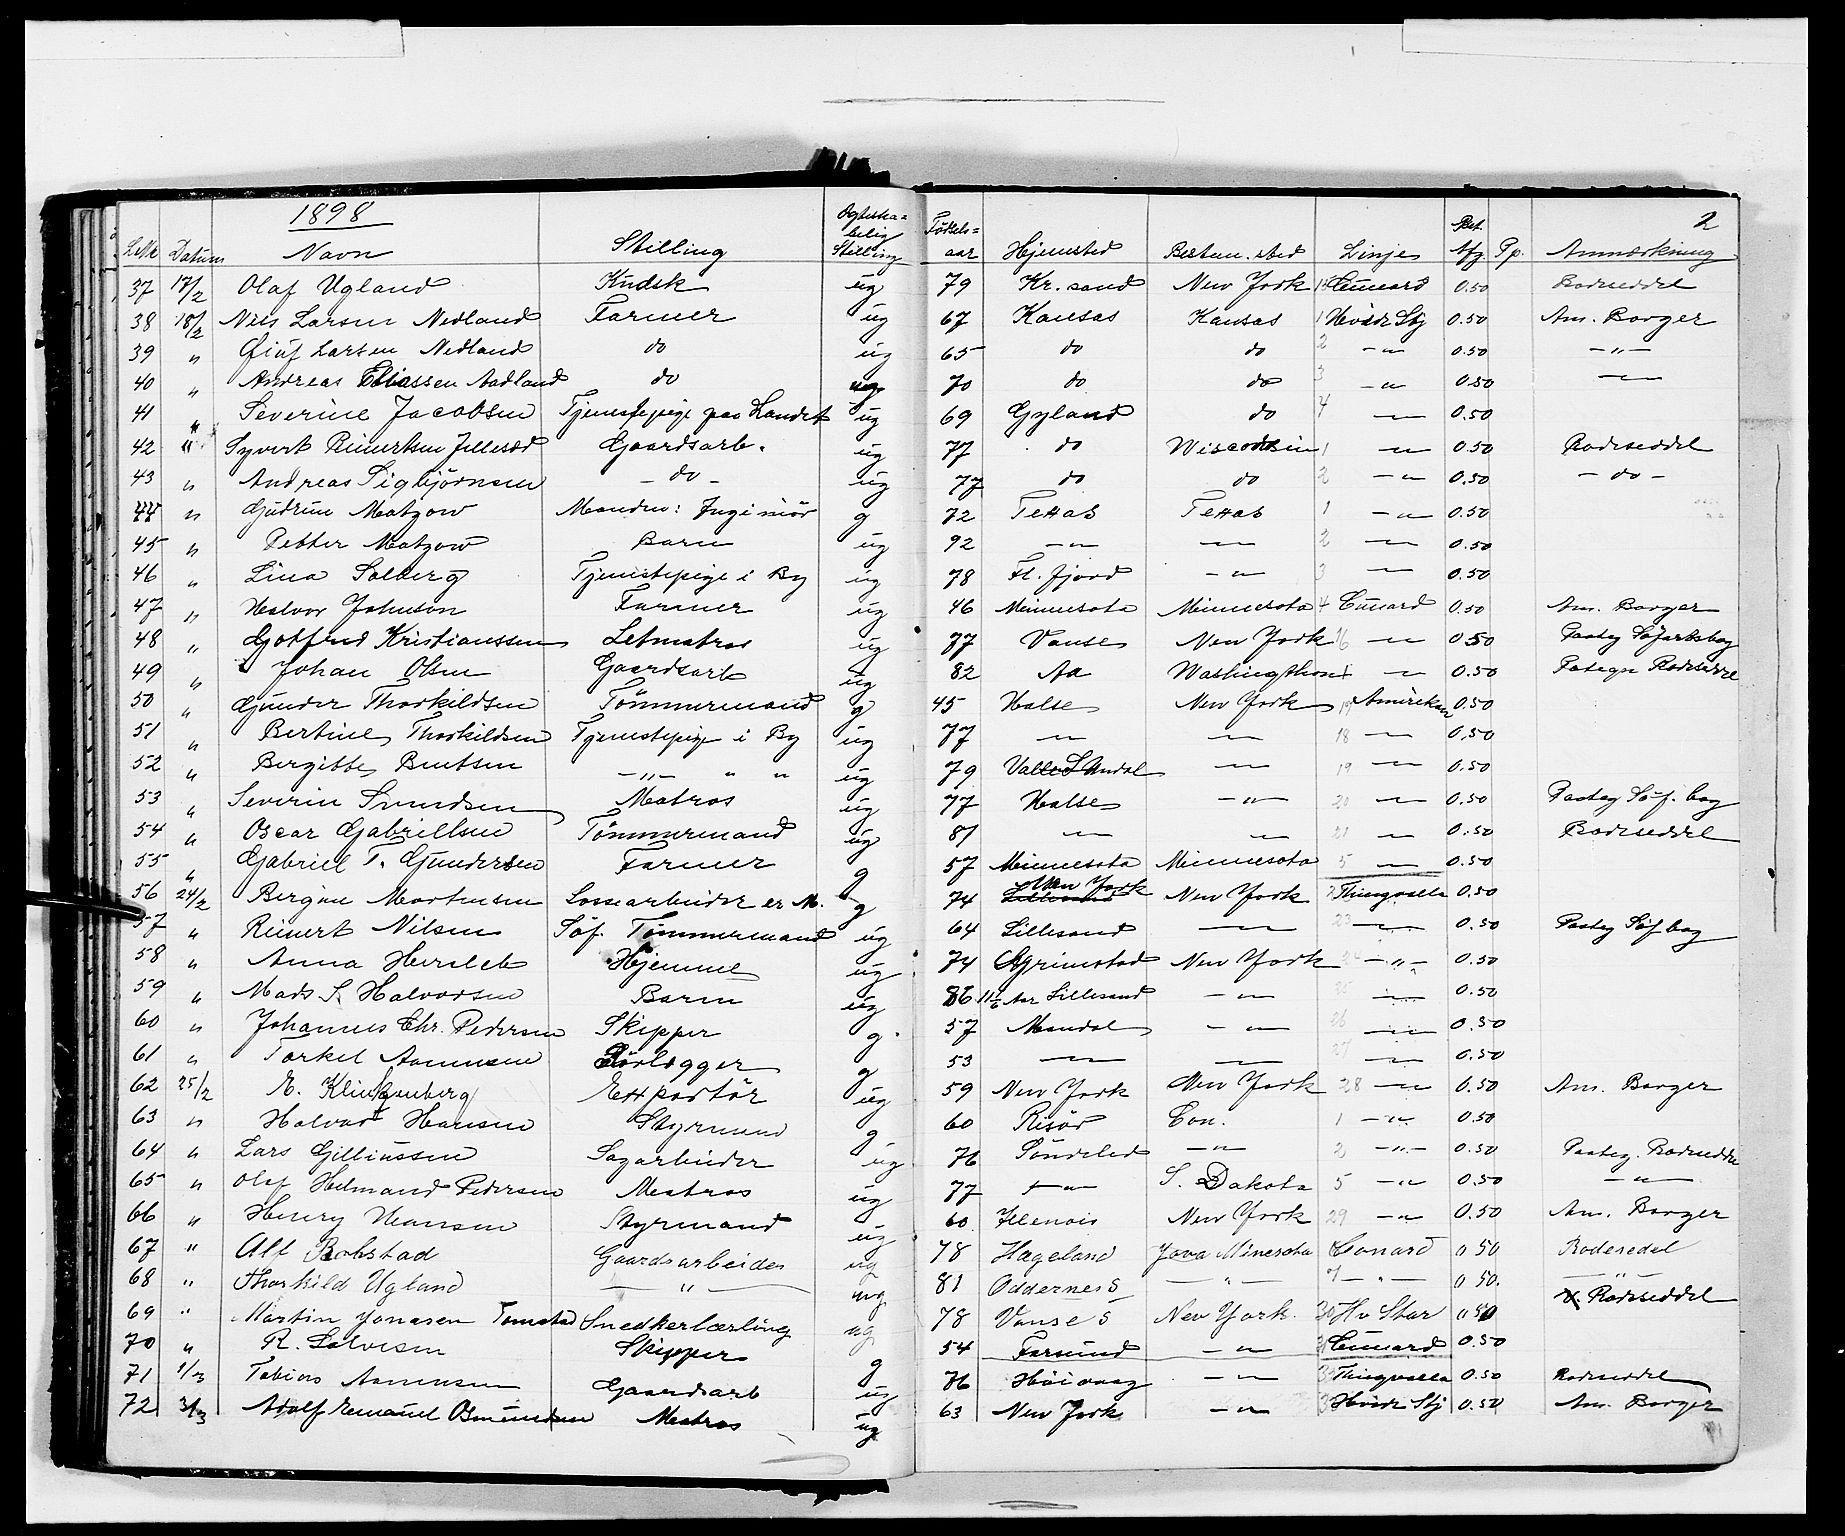 1898
2
LNo Datum Navn Stilling Ægteska= belig Stilling Födels= aar Hjemsted Bestem. sted Linje Bet. Afg. Pp. Anmærkning
37 17/2 Olaf Ugland Kudsk ug 79 Kr. sand New York Cunard 0.50 Rodeseddel
38 18/2 Nils Larsen Nedland Farmer ug 67 Kansas Kansas 1 Hvide Stj 0.50 Am. Borger
39 " Larsen Nedland do ug 65 do do 2 -"- 0.50 -"-
40 " Andreas Eliassen Aadland do ug 70 do do 3 -"- 0.50 -"-
41 " Severine Jacobsen Tjenestepige paa Landet ug 69 Gyland do 4 -"- 0.50
42 " Syvert Reinertsen Gaardsarb. ug 77 do Wisconsin 1 -"- 0.50 Rodeseddel
43 " Andreas Sigbjörnsen -do- ug 77 do do 2 -"- 0.50 -do-
44 " Gudrun Matzow Manden: Ingeniör g 72 Texas Texas 1 -"- 0.50
45 " Petter Matzow Barn ug 92 -"- -"- 2 -"- 0.50
46 " Lina Solberg Tjenestepige i By ug 78 Fl. fjord -"- 3 -"- 0.50
47 " Halvor Johnson Farmer ug 46 Minnesota Minnesota 4 Cunard 0.50 Am. Borger
48 " Gotfred Kristianssen Letmatros ug 77 Vanse New York 16 -"- 0.50 Paateg Söfartsbog
49 " Johan Olsen Gaardsarb ug 82 Aa Washingthon 1 -"- 0.50 Pategn Rodeseddel
50 " Gunder Thorkildsen Tömmermand g 45 Halse New York Amerikan 0.50
51 " Bertine Thorkildsen Tjenestepige i By ug 77 -"- -"- 18 -"- 0.50
52 " Bergitte Bentsen -"- " " ug 79 Valle S. Undal -"- 19 -"- 0.50
53 " Severin Svendsen Matros ug 77 Halse -"- 20 -"- 0.50 Paateg Söf. bog
54 " Oscar Gabrielsen Tömmermand ug 81 -"- -"- 21 -"- 0.50 Rodeseddel
55 " Gabriel T. Gundersen Farmer g 57 Minnesota Minnesota 5 -"- 0.50
56 24/2 Mortensen Lossearbeider er M. g 74 New York New York Thingvalla 0.50
57 " Reinert Nilsen Söf. Tömmermand ug 64 Lillesand -"- 23 -"- 0.50 Paateg Söf bog
58 " Anna Hersleb Hjemme ug 74 Grimstad New York 24 -"- 0.50
59 " Mads S. Halvorsen Barn ug 86 11½ Aar Lillesand -"- 25 -"- 0.50
60 " Johannes Chr. Pedersen Skipper g. 57 Mandal -"- 26 -"- 0.50
61 " Torkel Aanensen g 53 -"- -"- 27 -"- 0.50
62 25/2 E. Klingenberg Exportör ug 59 New York New York 28 -"- 0.50 Am. Borger
63 " Halvor Hansen Styrmand g 60 Risör Con. 1 -"- 0.50
64 " Lars Gilliussen Sagarbeider ug 76 Söndeled -"- 2 -"- 0.50 Paateg. Rodseddel
65 " Olaf Helmand Pedersen Matros ug 77 -"- S. Dakota 5 -"- 0.50 -"-
66 " Henry Hansen Styrmand ug 60 Illenois New York 29 -"- 0.50 Am. Borger
67 " Alf Robstad Gaardsarbeider ug 78 Hægeland Jova Minesota Conard 0 50 Rodesedel
68 " Thorkild Ugland -"- ug 81 Oddernes -"- 7 -"- 0 50. -"-
69 " Martin Jonasen Tomstad Snedkerlærling ug 78 Vanse New York. 30 Hv Star 0 50 Rodeseddel
70 " R. Salvesen Skipper g 54 Farsund -"- Cunard 0.50
71 1/3 Tobias Aanensen Gaardsarb ug 76 Höiovaag -"- Thingvalla 0.50 Rodseddel
72 3/3 Adolf Emanuel Osmundsen Matros ug 63 New York -"- Hvide Stj 0.50 Am. Borger